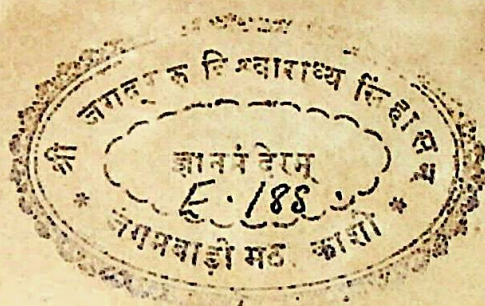 श्री जगद्गुरु विश्वाराध्य सिंहासन
ज्ञानमंदिरम्
E. 188.
* जंगमवाड़ी मठ. काशी *